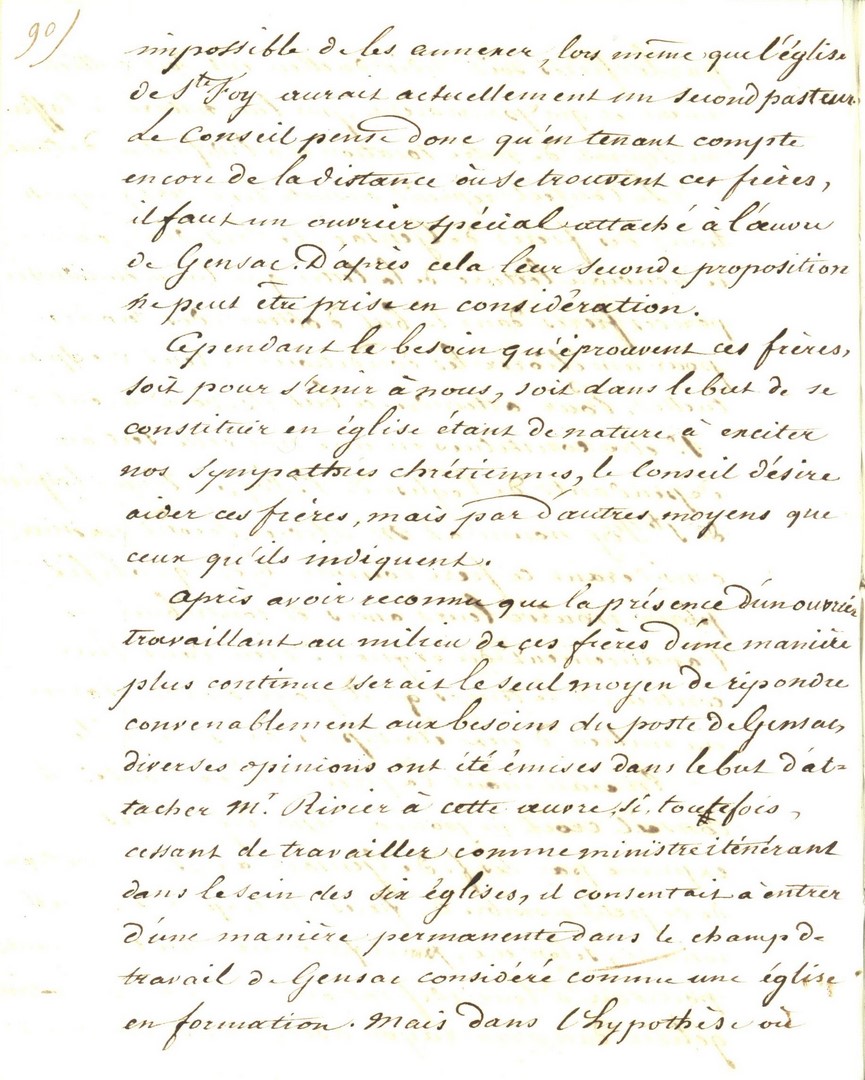 90)
impossible de les annexer, lors même que l'église
de Ste Foy aurait actuellement un second pasteur.
Le Conseil pense donc qu'en tenant compte
encore de la distance où se trouvent ces frères,
il faut un ouvrier spécial attaché à l'œuvre
de Gensac. D'après cela leur seconde proposition
ne peut être prise en considération.
Cependant le besoin qu'éprouvent ces frères,
soit pour s'unir à nous, soit dans le but de se
constituer en église étant de nature à exciter
nos sympathies chrétiennes, le Conseil désire
aider ces frères, mais par d'autres moyens que
ceux qu'ils indiquent.
Après avoir reconnu que la présence d'un ouvrier
travaillant au milieu de ces frères d'une manière
plus continue serait le seul moyen de répondre
convenablement aux besoins du poste de Gensac,
diverses opinions ont été émises dans le but d'at=
tacher Mr. Rivier à cette œuvre, si, toutefois,
cessant de travailler comme ministre iténérant
dans le sein des six églises, il consentait à entrer
d'une manière permanente dans le champ de
travail de Gensac considéré comme une église
en formation. Mais dans l'hypothèse où